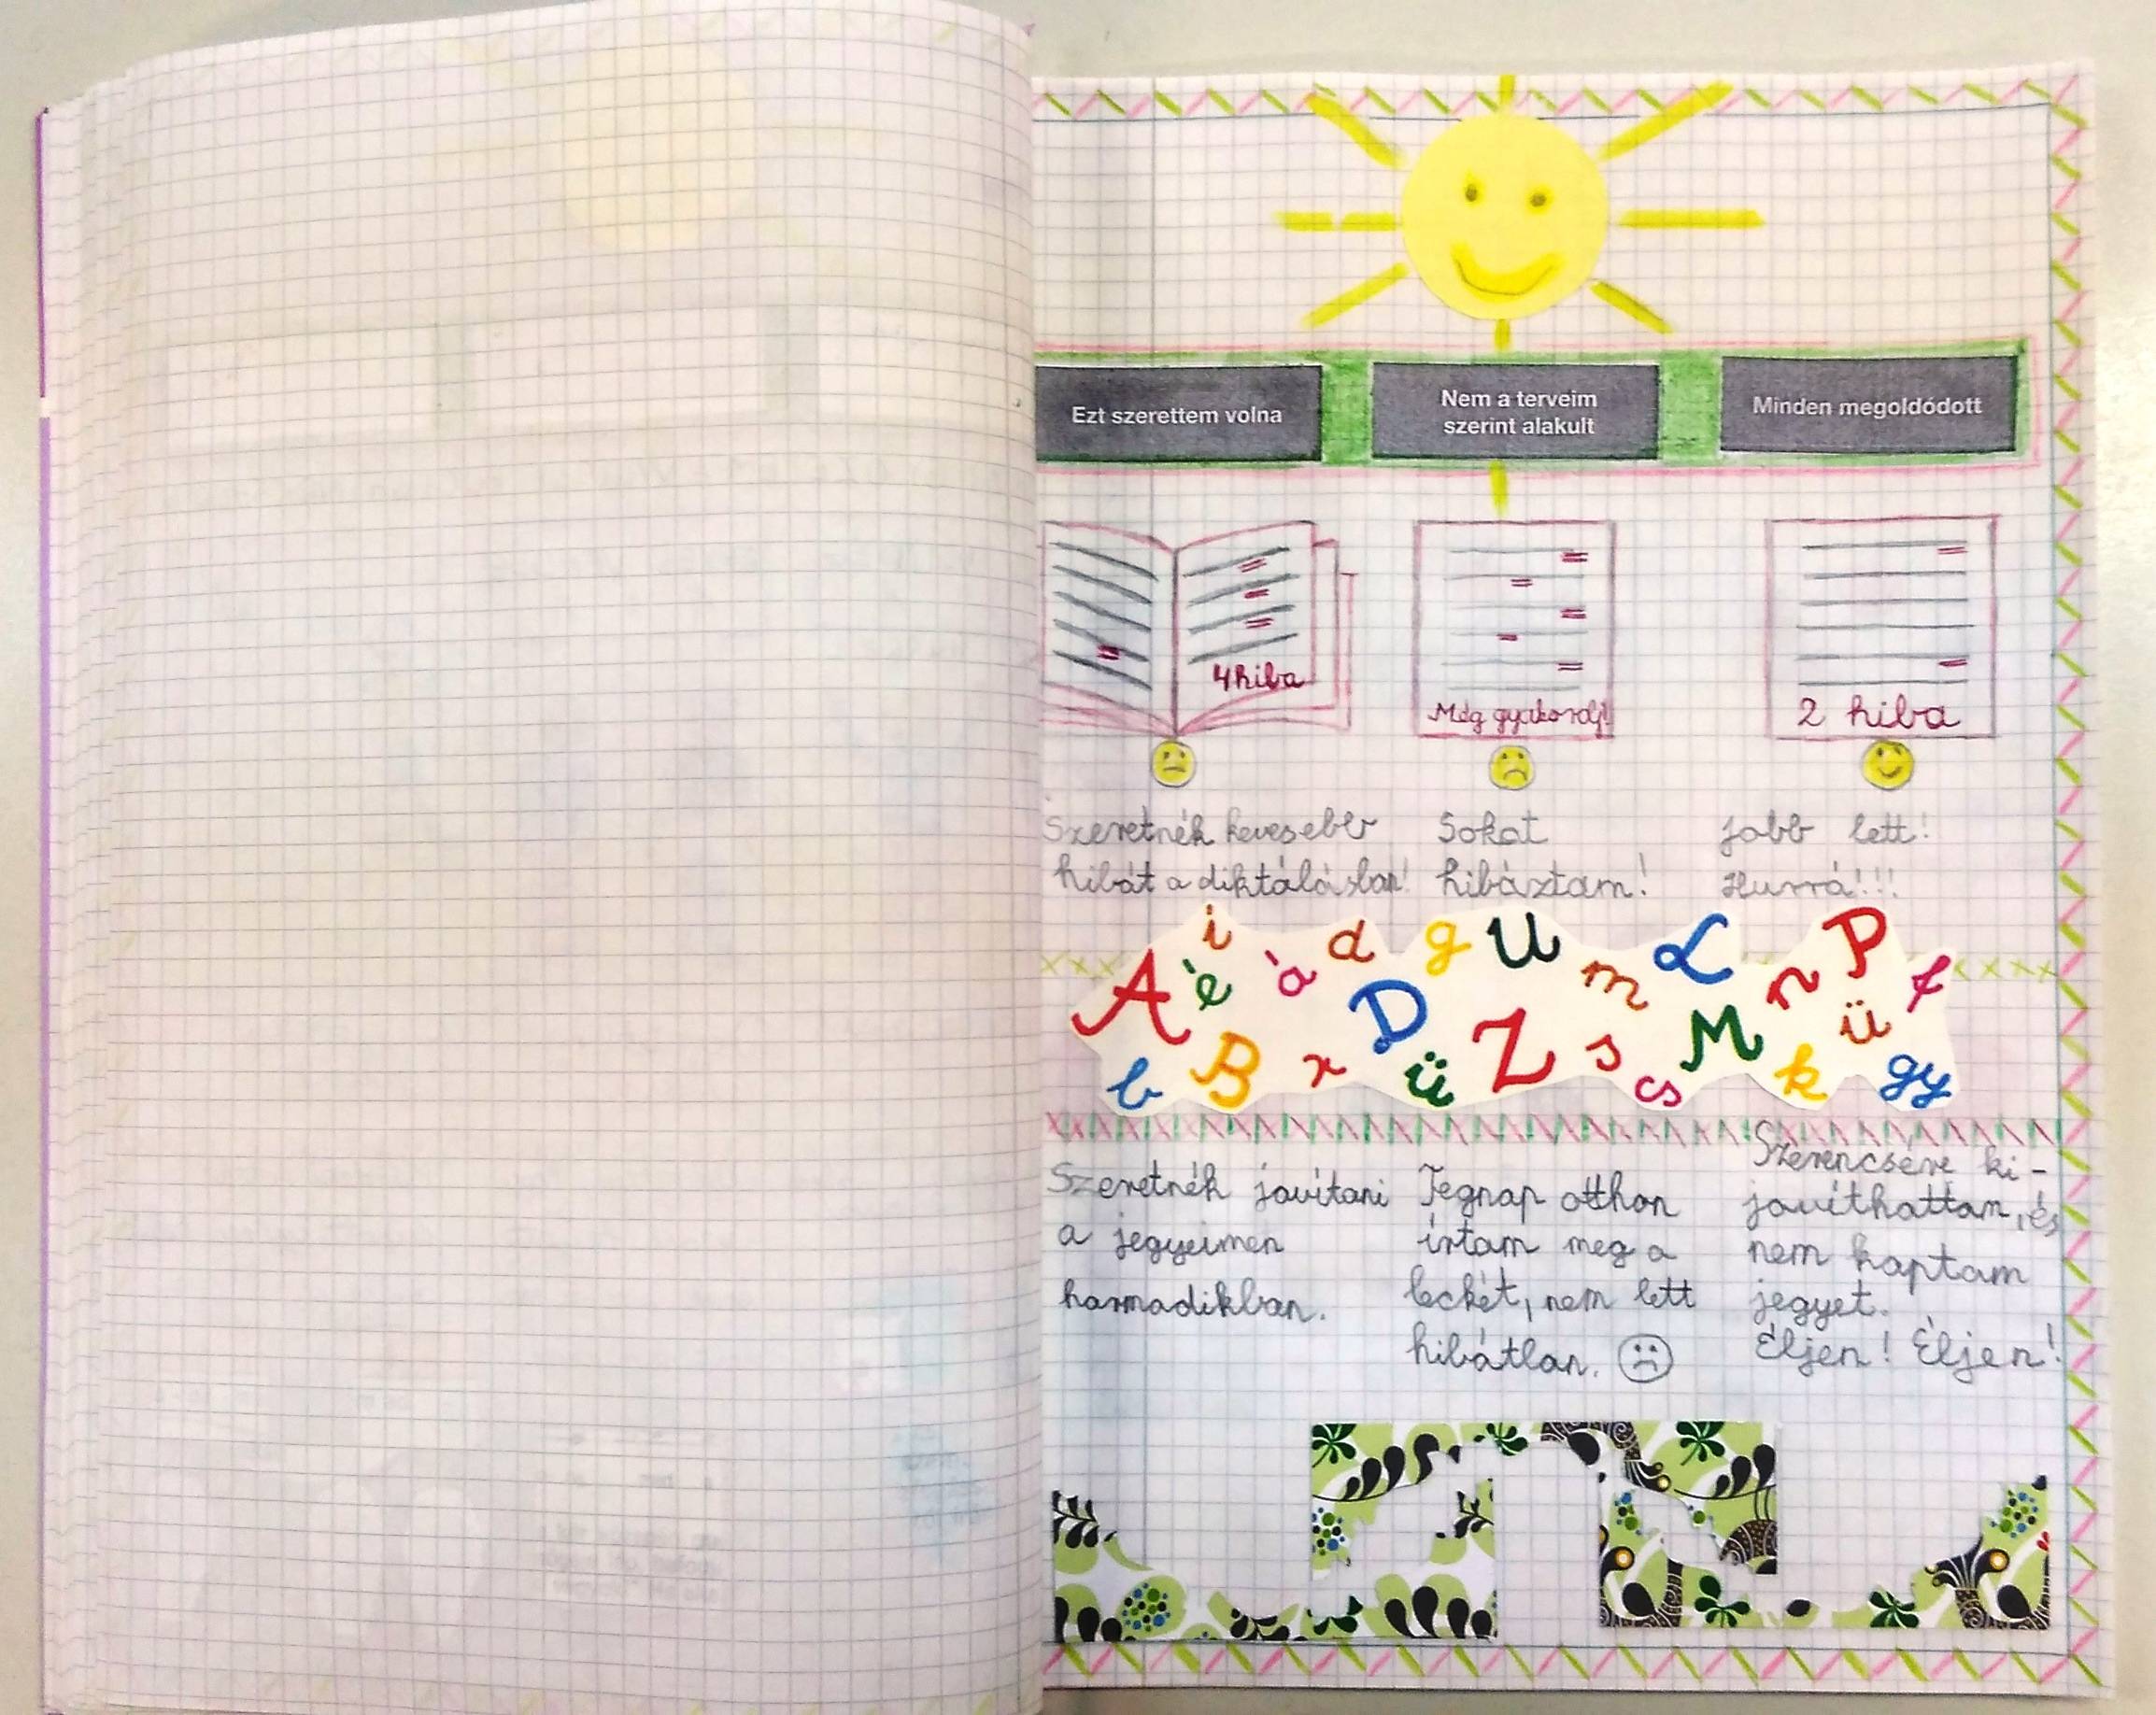 Ezt szerettem volna
Nem a terveim
szerint alakult
Minden megoldódott
4 hiba
Még gyakorolj!
2 hiba
Szeretnék kevesebb
hibát a diktálásban!
Sokat
hibáztam!
Jobb lett!
Hurrá!!!
i d g U L P
A é á m n f
D ü
b B r ü Z s M k gy
cs
Szeretnék javítani
a jegyeimen
harmadikban.
Tegnap otthon
írtam meg a
leckét, nem lett
hibátlan.
Szerencsére ki-
javíthattam, és
nem kaptam
jegyet.
Éljen! Éljen!